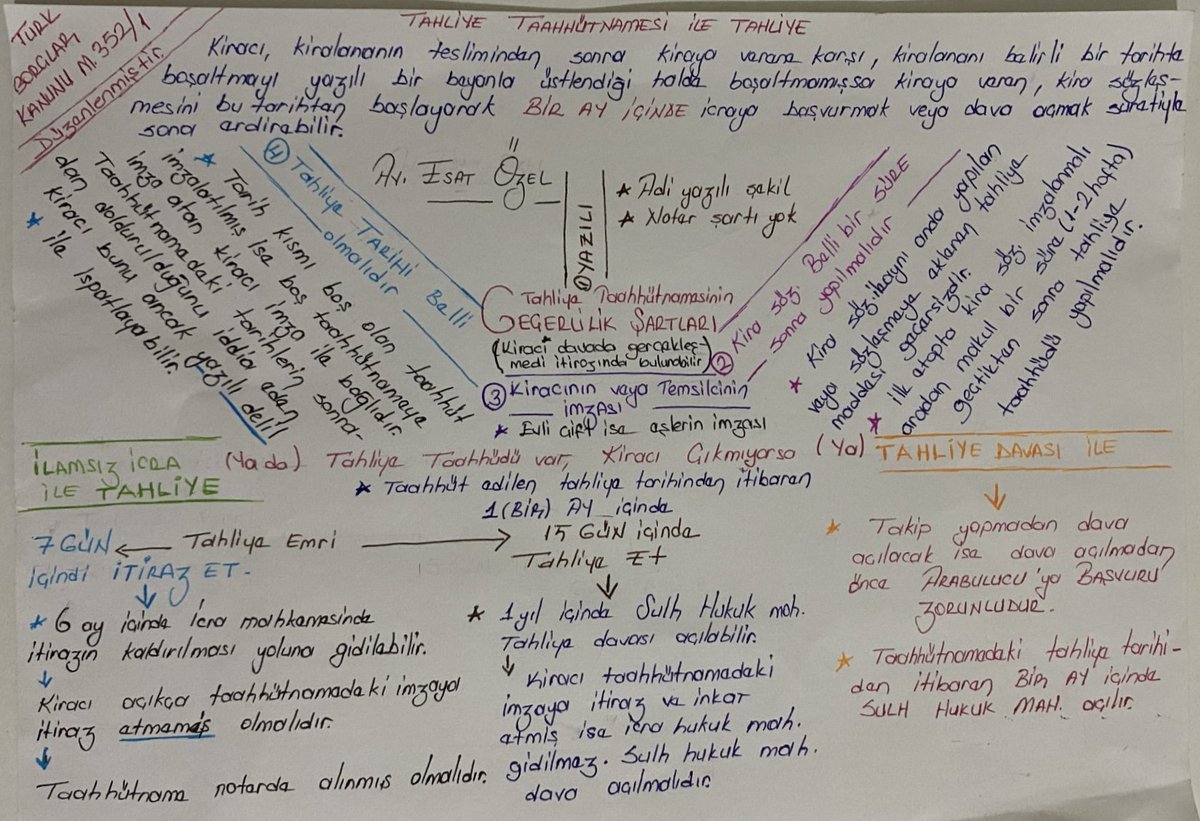 TAHLİYE TAAHHÜTNAMESİ İLE TAHLİYE
TÜRK
BORÇLAR
KANUNU M.352/1
Düzenlenmiştir.
Kiracı, kiralananın tesliminden sonra kiraya verene karşı, kiralananı belirli bir tarihte
boşaltmayı yazılı bir beyanla üstlendiği halde boşaltmamışsa kiraya veren, kira sözleş-
mesini bu tarihten başlayarak BİR AY İÇİNDE icraya başvurmak veya dava açmak suretiyle
sona erdirebilir.
Av. ESAT ÖZEL
① YAZILI
★ Adi yazılı şekil
★ Noter şartı yok
Tahliye Taahhütnamesinin
GEÇERLİLİK ŞARTLARI
(Kiracı davada gerçekleş-
medi itirazında bulunabilir)
② Kira söz. Belli bir SÜRE
sonra yapılmalıdır
★ Kira söz. ile aynı anda yapılan
veya sözleşmeye eklenen tahliye
maddesi geçersizdir.
★ İlk etapta kira söz. imzalanmalı
aradan makul bir süre (1-2 hafta)
geçtikten sonra tahliye
taahhüdü yapılmalıdır.
③ Kiracının veya Temsilcinin
İMZASI
★ Evli çift ise eşlerin imzası
④ Tahliye TARİHİ Belli
olmalıdır
★ Tarih kısmı boş olan taahhüt
imzalatılmış ise boş taahhütnameye
imza atan kiracı imza ile bağlıdır.
Taahhütnamedeki tarihlerin sonra-
dan doldurulduğunu iddia eden
kiracı bunu ancak yazılı delil
★ ile ispatlayabilir.
İLAMSIZ İCRA
İLE TAHLİYE
(Ya da) Tahliye Taahhüdü var, Kiracı Çıkmıyorsa (Ya)
TAHLİYE DAVASI İLE
★ Taahhüt edilen tahliye tarihinden itibaren
1 (BİR) AY içinde
7 GÜN ← Tahliye Emri → 15 GÜN içinde
içindi İTİRAZ ET.
Tahliye Et
★ 6 ay içinde İcra mahkemesinde
itirazın kaldırılması yoluna gidilebilir.
↓
Kiracı açıkça taahhütnamedeki imzaya
itiraz etmemiş olmalıdır.
↓
Taahhütname noterde alınmış olmalıdır.
★ 1 yıl içinde Sulh Hukuk mah.
Tahliye davası açılabilir.
↓ Kiracı taahhütnamedeki
imzaya itiraz ve inkar
etmiş ise icra hukuk mah.
gidilmez. Sulh hukuk mah.
dava açılmalıdır.
↓
★ Takip yapmadan dava
açılacak ise dava açılmadan
önce ARABULUCU'ya BAŞVURU
ZORUNLUDUR.
★ Taahhütnamedeki tahliye tarihi-
den itibaren BİR AY içinde
SULH HUKUK MAH. açılır.